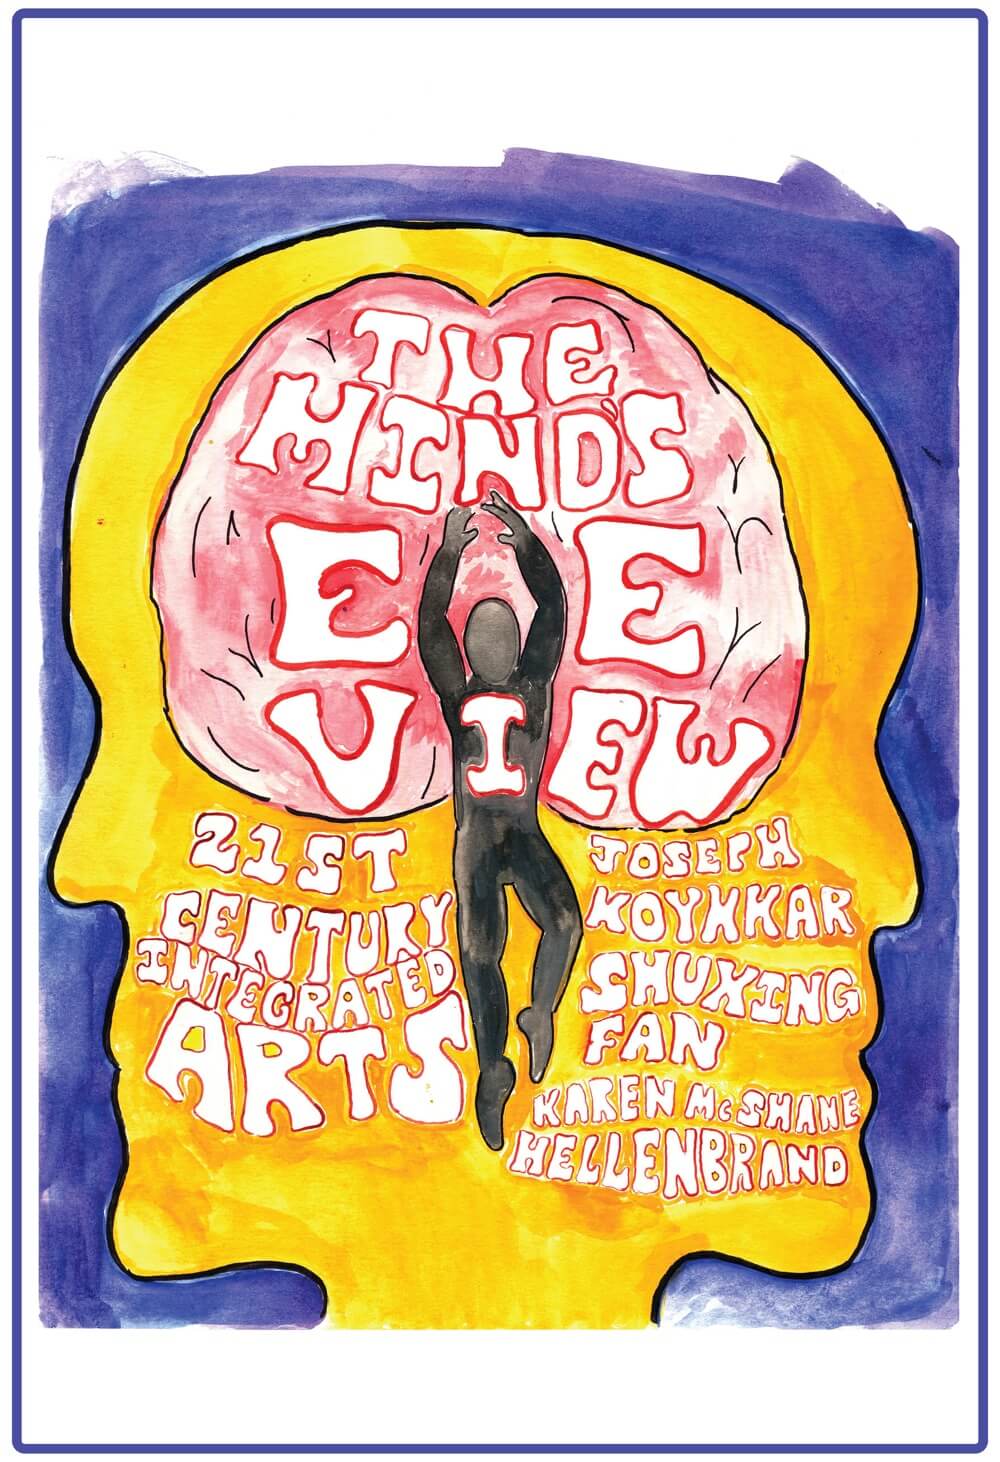 THE
MIND'S
EYE
VIEW
21ST
CENTURY
INTEGRATED
ARTS
JOSEPH
KOYKKAR
SHUXING
FAN
KAREN McSHANE
HELLENBRAND